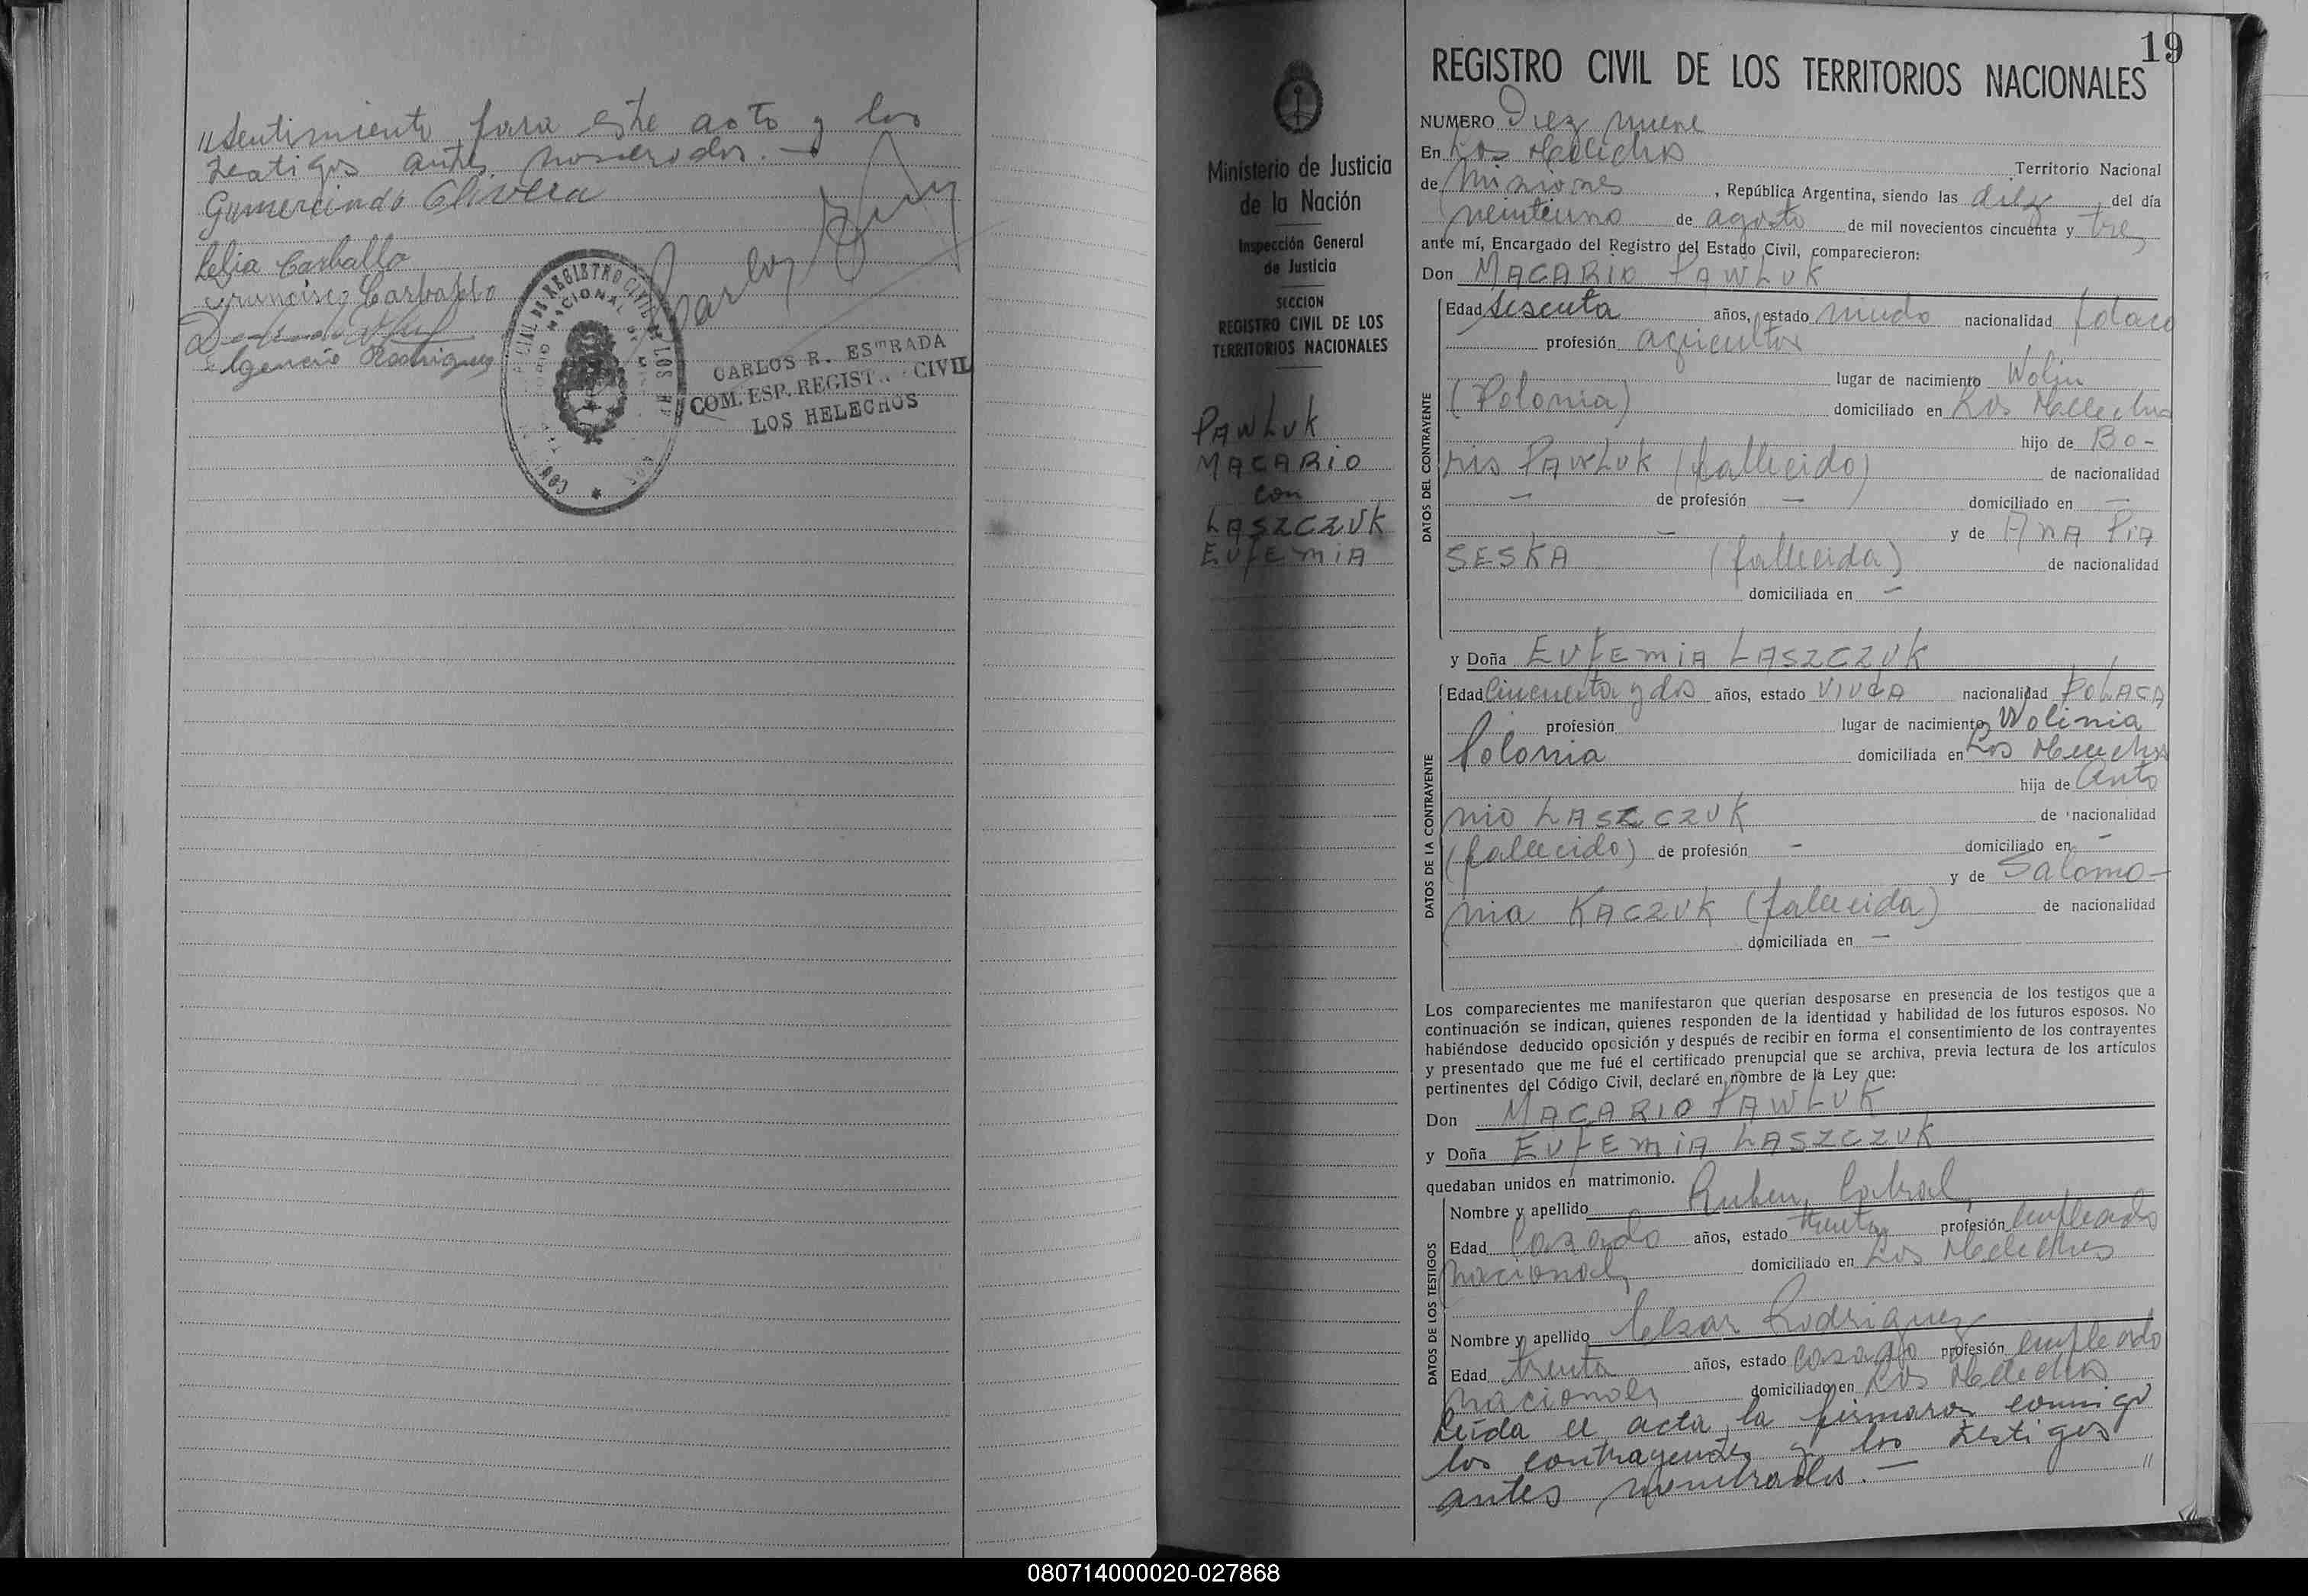 "sentimiento para este acto y los
testigos antes nombrados.—
Gumercindo Olivera
Lelia Carballo
Francisco Carballo
Rodriguez
Carlos
CARLOS R. ESTRADA
COM. ESP. REGIST... CIVIL
LOS HELECHOS
Ministerio de Justicia
de la Nación
Inspección General
de Justicia
SECCION
REGISTRO CIVIL DE LOS
TERRITORIOS NACIONALES
PAWLUK
MACARIO
con
LASZCZUK
EUFEMIA
19
REGISTRO CIVIL DE LOS TERRITORIOS NACIONALES
NUMERO Diez nueve
En Los Helechos
Territorio Nacional
de Misiones , República Argentina, siendo las diez del día
veintiuno de agosto de mil novecientos cincuenta y tres
ante mí, Encargado del Registro del Estado Civil, comparecieron:
Don MACARIO PAWLUK
DATOS DEL CONTRAYENTE
Edad sesenta años, estado viudo nacionalidad polaco
profesión agricultor
lugar de nacimiento Wolin
(Polonia) domiciliado en Los Helechos
hijo de Bo-
ris PAWLUK (fallecido) de nacionalidad
— de profesión — domiciliado en —
— y de ANA PIA
SESKA (fallecida) de nacionalidad
domiciliada en —
y Doña EUFEMIA LASZCZUK
DATOS DE LA CONTRAYENTE
Edad Cincuenta y dos años, estado VIUDA nacionalidad POLACA
profesión lugar de nacimiento Wolinia
Polonia domiciliada en Los Helechos
hija de Anto
nio LASZCZUK de nacionalidad
(fallecido) de profesión - domiciliado en -
y de Salomo-
nia KACZUK (fallecida) de nacionalidad
domiciliada en —
Los comparecientes me manifestaron que querían desposarse en presencia de los testigos que a
continuación se indican, quienes responden de la identidad y habilidad de los futuros esposos. No
habiéndose deducido oposición y después de recibir en forma el consentimiento de los contrayentes
y presentado que me fué el certificado prenupcial que se archiva, previa lectura de los artículos
pertinentes del Código Civil, declaré en nombre de la Ley que:
Don MACARIO PAWLUK
y Doña EUFEMIA LASZCZUK
quedaban unidos en matrimonio.
DATOS DE LOS TESTIGOS
Nombre y apellido Ruben Cabral
Edad Casado años, estado treinta profesión empleado
nacional, domiciliado en Los Helechos
Nombre y apellido Celsar Rodriguez
Edad treinta años, estado casado profesión empleado
nacional, domiciliado en Los Helechos
Leída el acta, la firmaron conmigo
los contrayentes y los testigos
antes nombrados.— "
080714000020-027868